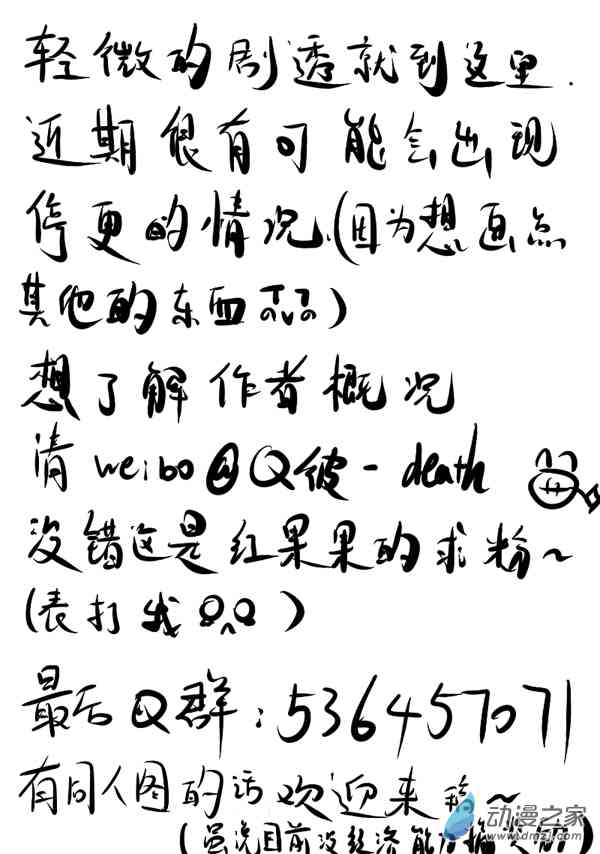 轻微的剧透就到这里.
近期很有可能会出现
停更的情况(因为想画点
其他的东西TvT)
想了解作者概况
请weibo@Q彼-death
没错这是红果果的求粉~
(表打我QAQ)
最后Q群:536457071
有同人图的话欢迎来~
(虽说目前没经济能力
动漫之家
www.dmzj.com